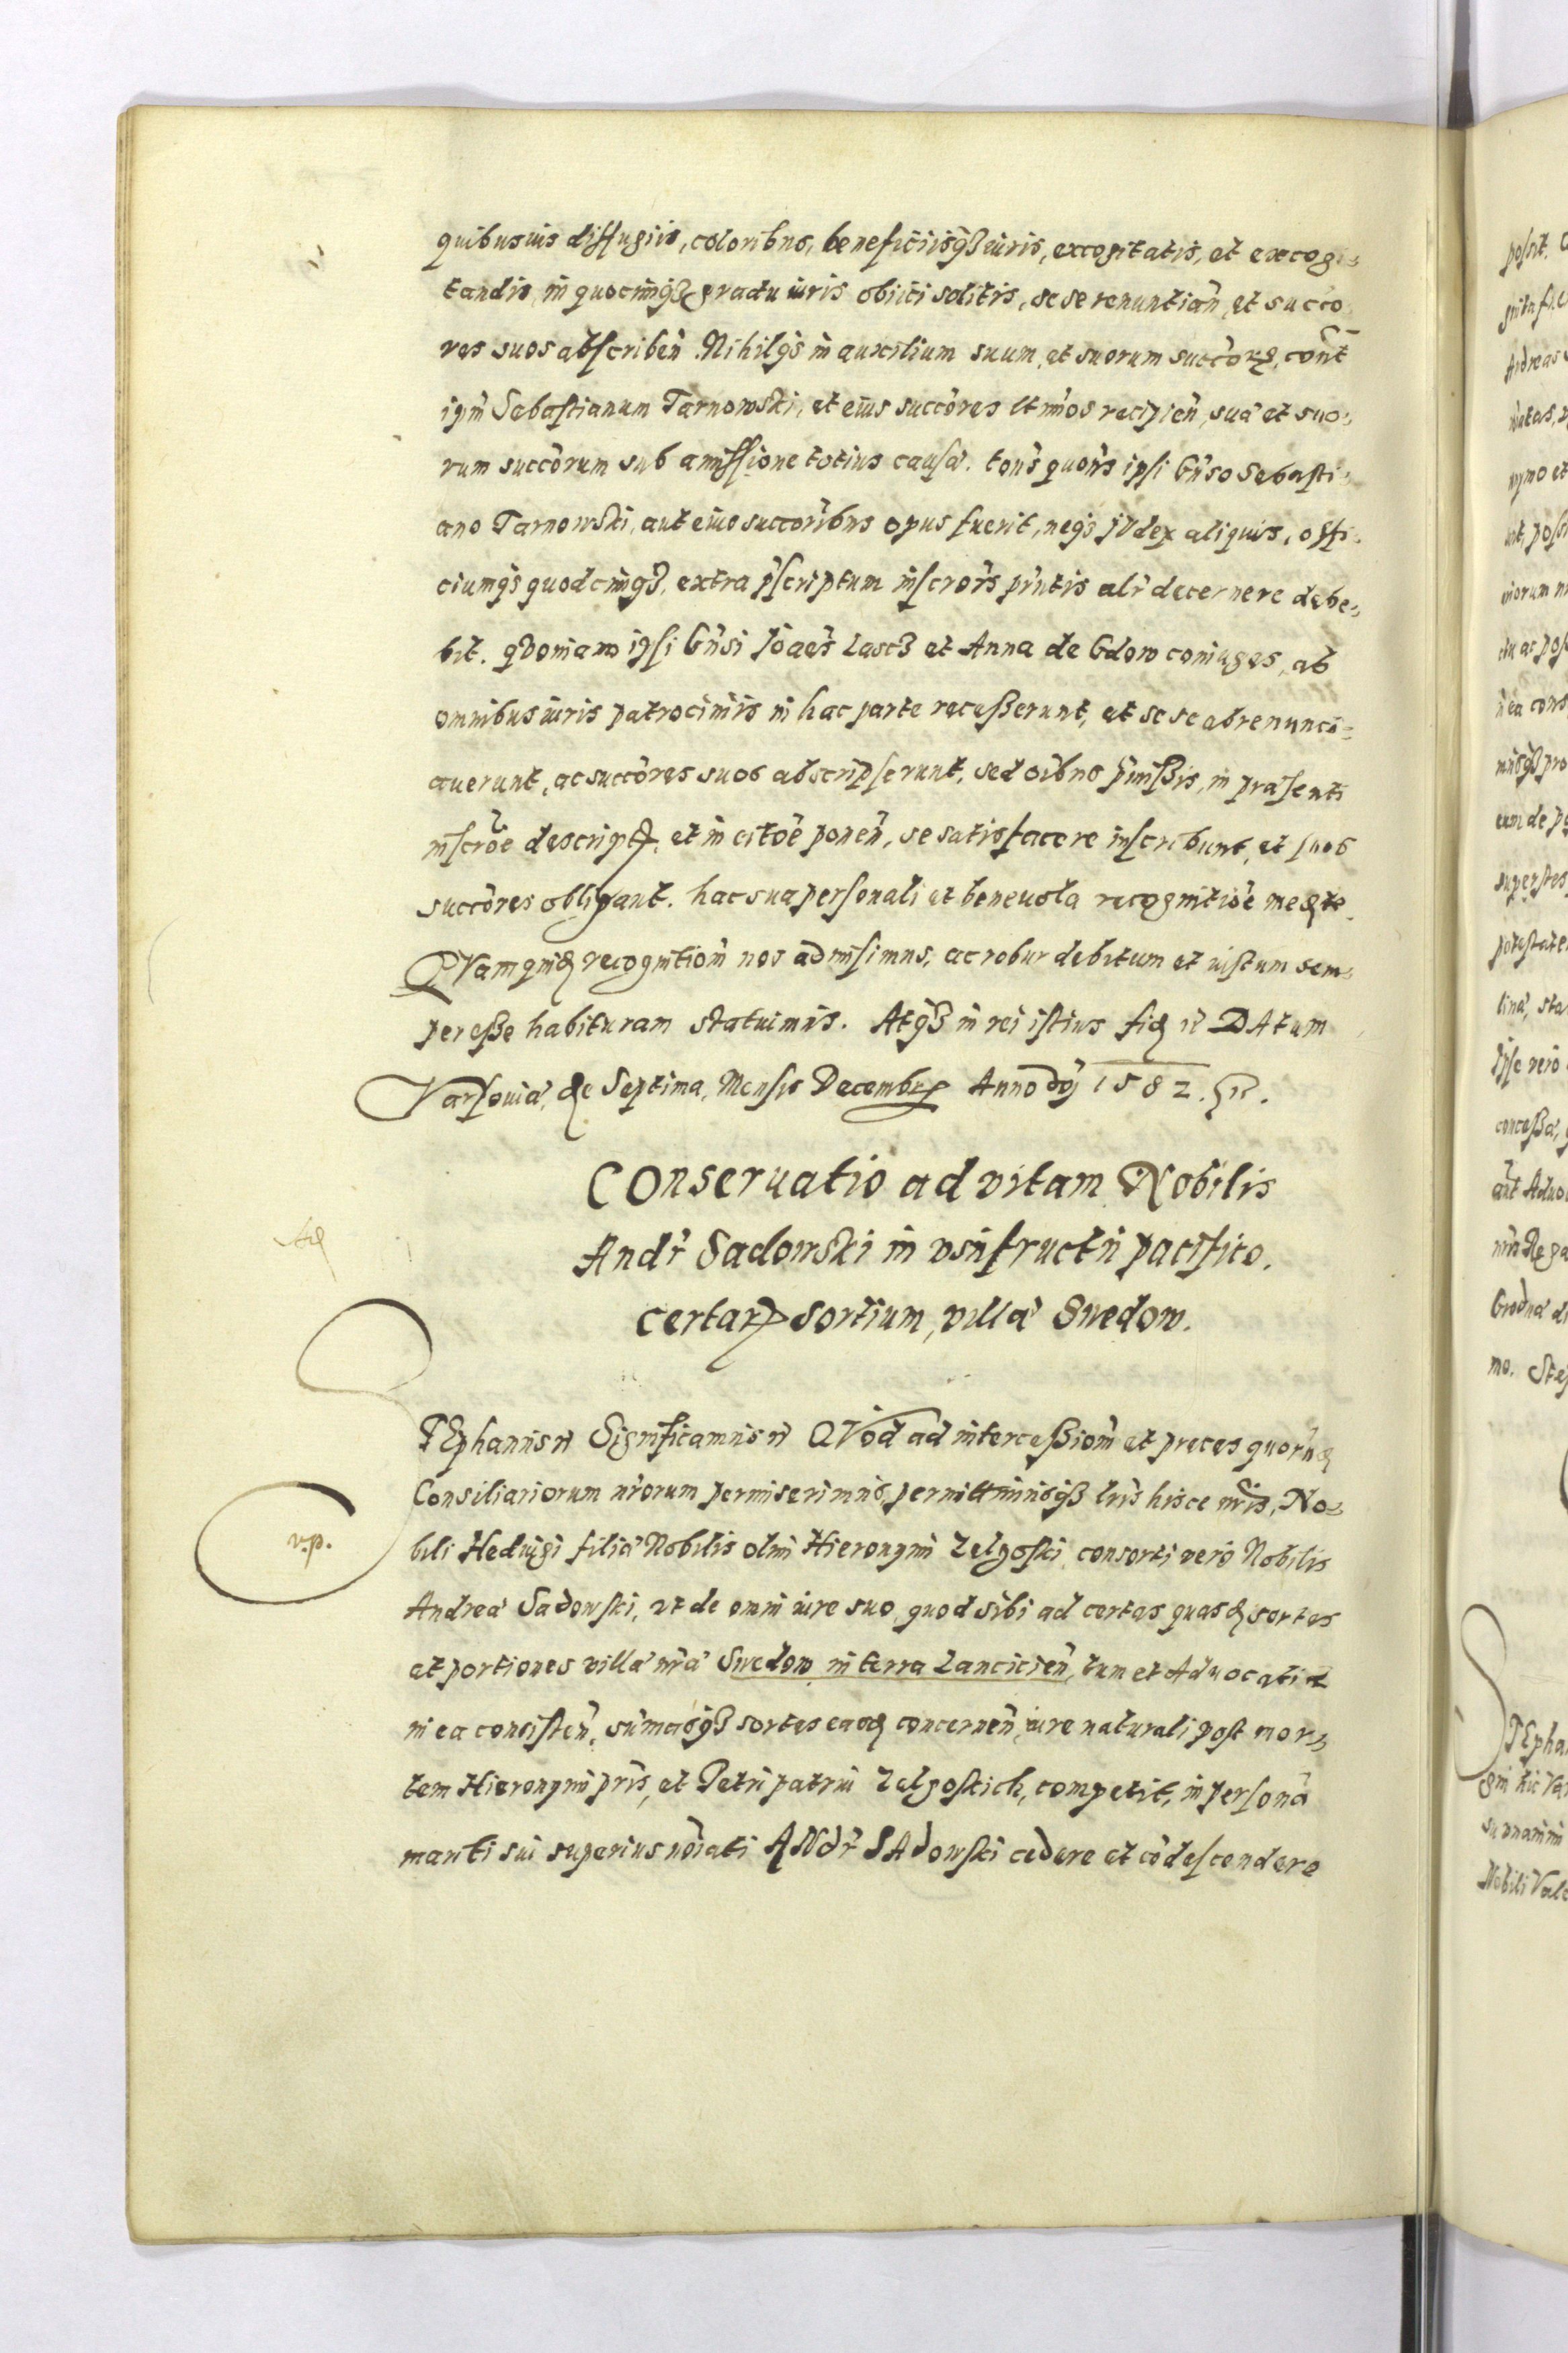 quibusuis diffugiis, coloribus, beneficiisq3 iuris, excogitatis, et excogi-
tandis, in quocunq3 gradu iuris obiici solitis, se se renuntian̄, et succo
res suos abscriben̄. Nihilq3 in auxilium suum, et suorum succor͂, cont̄
ipm̄ Sebastianum Tarnowski, et eius succōres ltīmos recipien̄, sua et suo-
rum succōrum sub amissione totius causæ. quor̄s ipsi Gn̄so Sebasti-
ano Tarnowski, aut eius succōribus opus fuerit, neq3 iudex aliquis, offi-
ciumq3 quodcunq3, extra pr̄scriptum inscrōis pn̄tis alr̄ decernere debe-
bit. quoniam ipsi Gn̄si Joaēs Lascz et Anna de Gdow coniuges, ab
omnibus iuris patrociniis in hac parte recesserunt, et se se abrenunci-
auerunt, ac succōres suos abscripserunt, sed oībus pm̄issis, in præsenti
inscrōe descript, et in citōe ponen̄, se satisfacere inscribunt, et suos
succōres obligant. hac sua personali et beneuola recognitiōe medte.
QVam quid recognitiōm nos admisimus, ac robur debitum et iustum sem-
per esse habituram statuimus. Atq3 in rei istius fid rc̄ DAtum
Varsouiæ, die Septima, Mensis Decembr Anno dnj 1582.
COnseruatio ad vitam Nobilis
Andr̄ Sadowski in vsufructu pacifico,
certar sortium, villæ Swedow.
STEphanus rc̄ Significamus rc̄ QVod ad intercessiōm et preces quorūd
v.p.
Consiliariorum nr̄orum permiserimus, permittimusq3 lrīs hisce nrīs, No-
bili Heduigi filiæ Nobilis olim Hieronymi Zelgoski, consorti vero Nobilis
Andreæ Sadowski, vt de omni iure suo, quod sibi ad certas quasd sortes
et portiones villæ nr̄æ Swedow in terra Lancicien̄, tum et Aduocatiæ
in ea consisten̄, sum̄asq3 sortes easd concernen̄, iure naturali post mor-
tem Hieronymi pr̄is, et Petri patrui Zelgoskich, competit, in personā
mariti sui superius nōiati ANdr̄ SAdowski cedere et cōdescendere